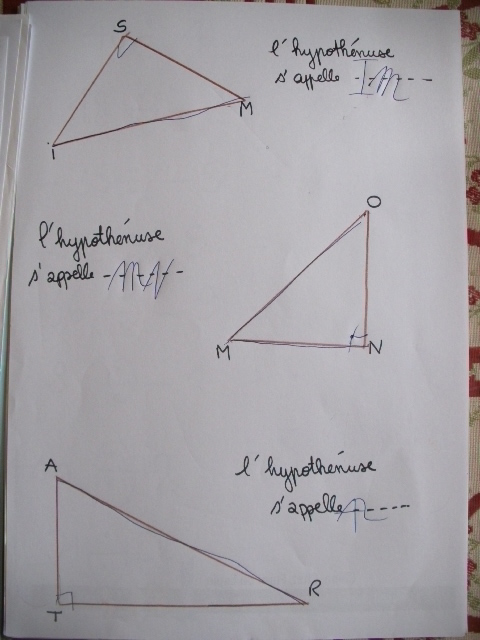 S
l'hypothénuse
s'appelle IM
M
I
O
l'hypothénuse
s'appelle
M
N
A
l'hypothénuse
s'appelle
R
T